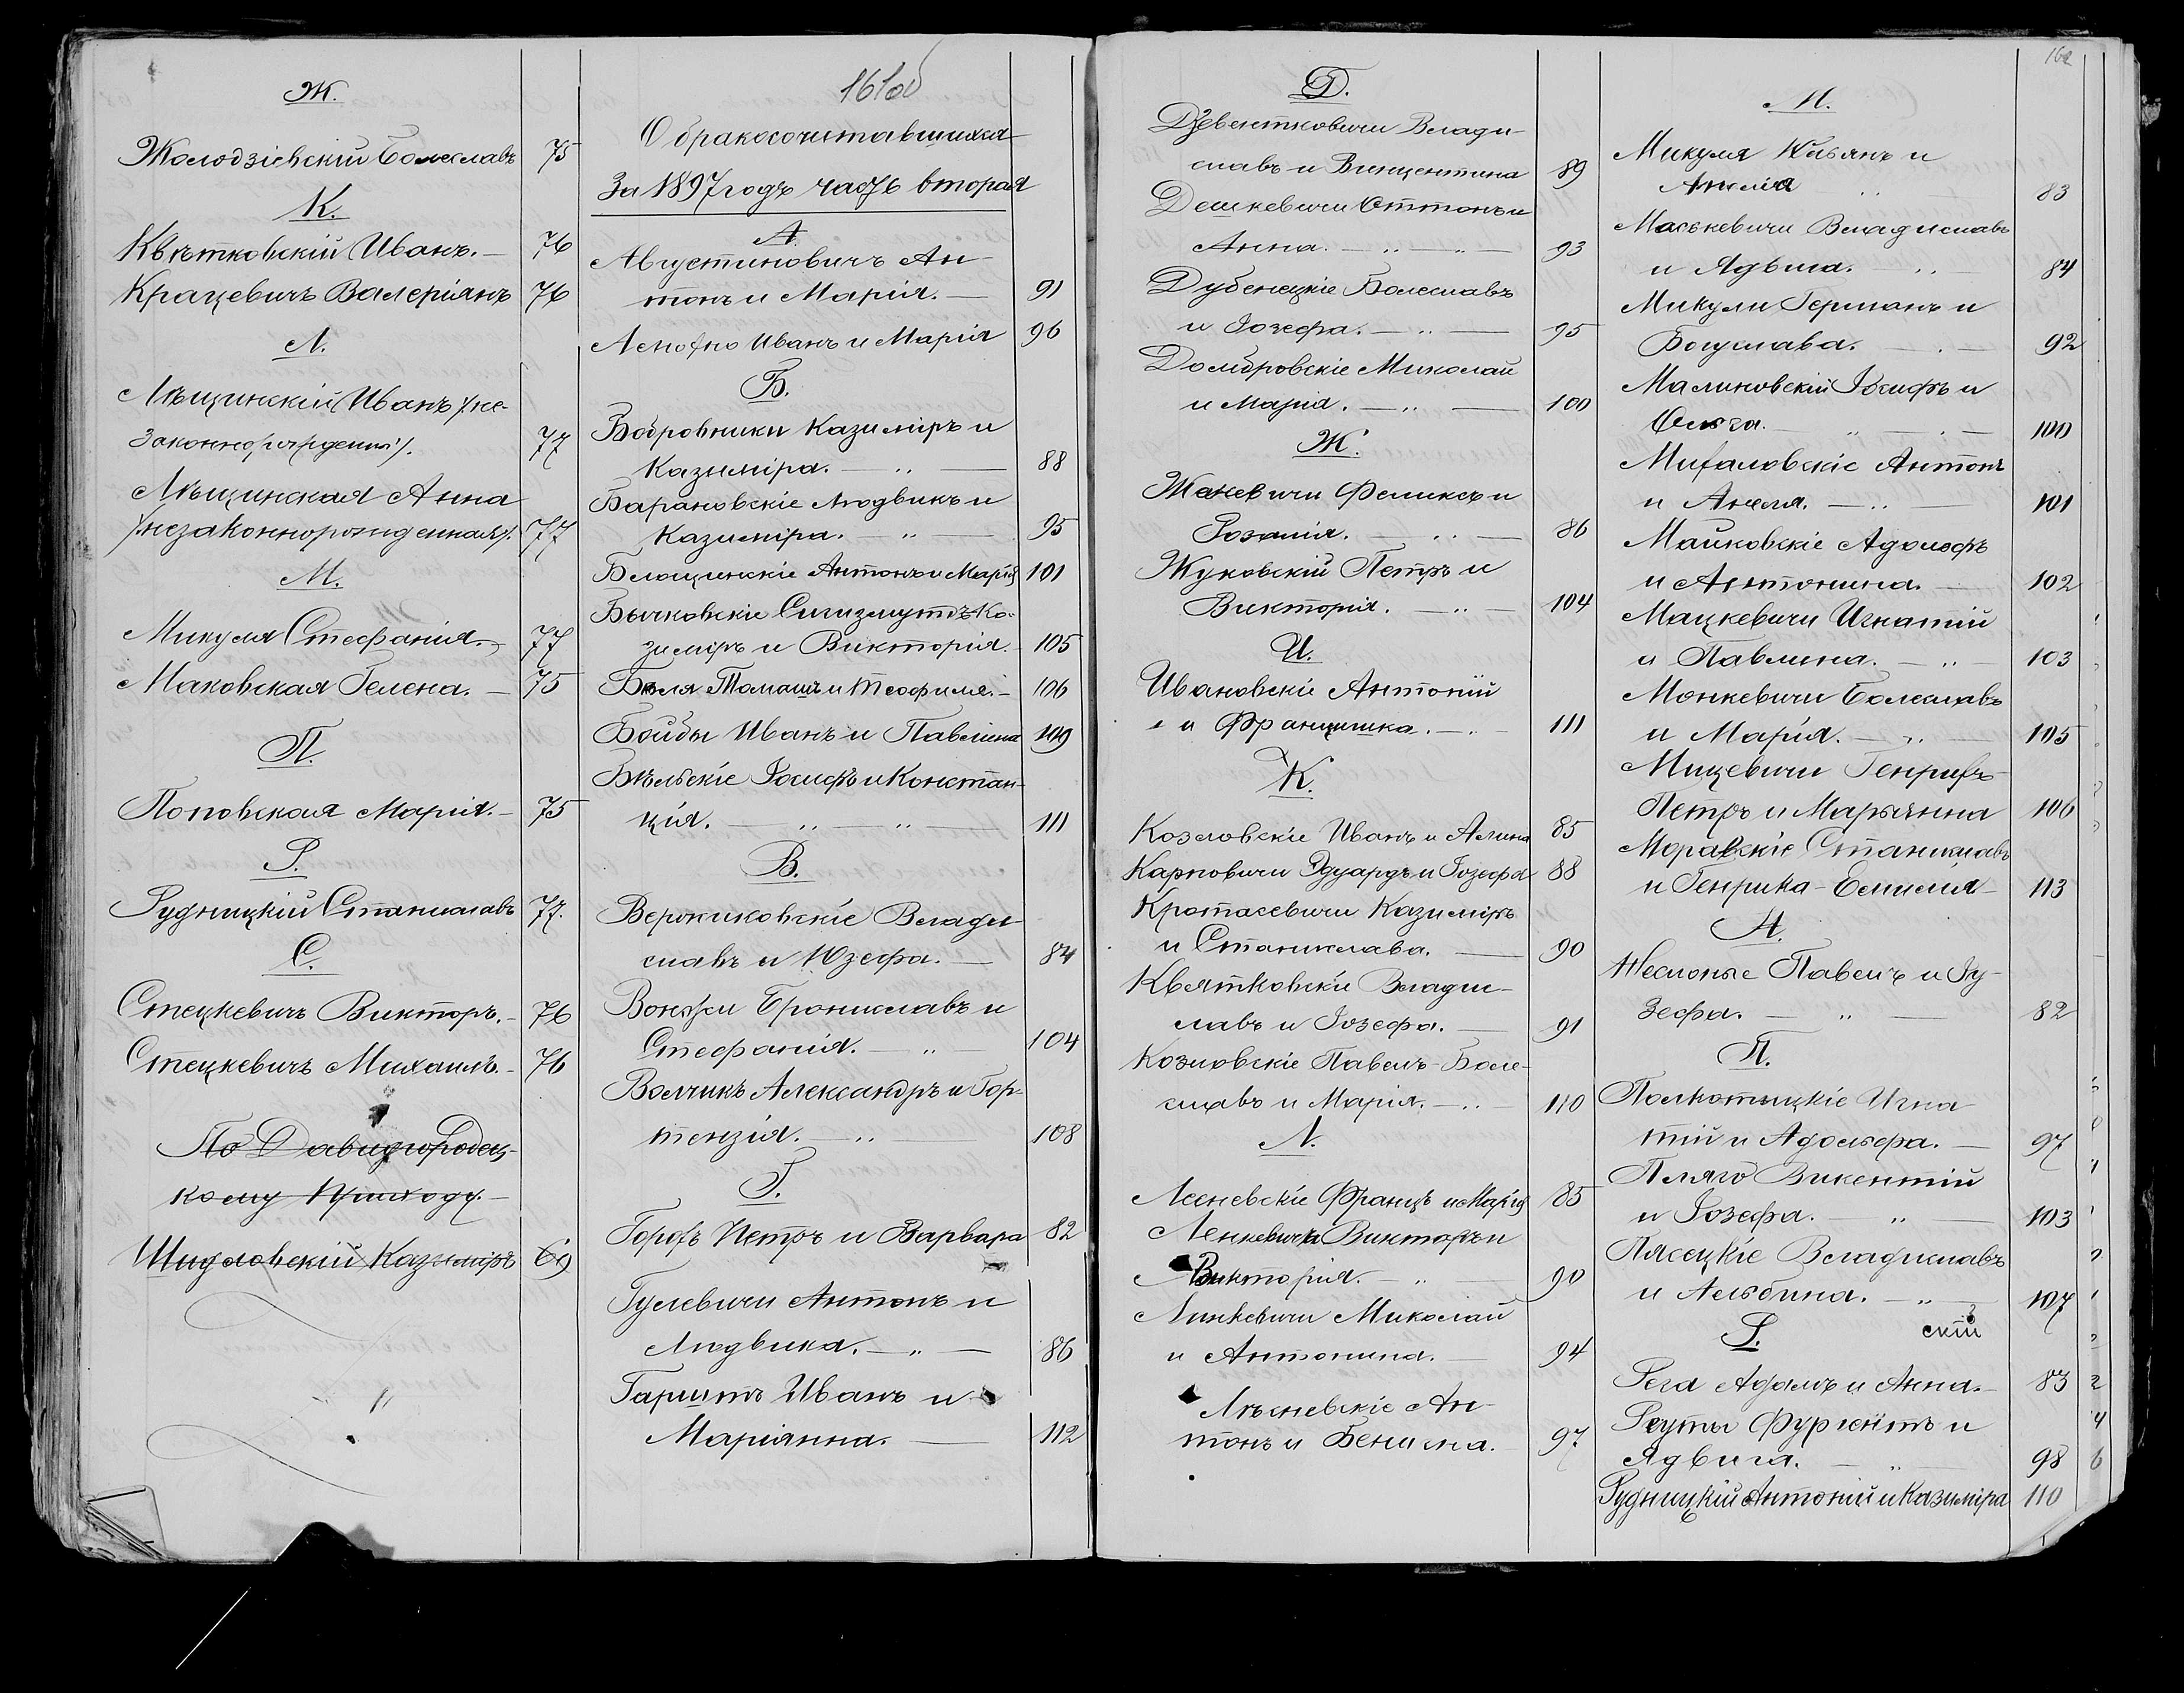 Ж.
Жолодзіевскій Болеславъ 75
К.
Квѣтковскій Иванъ. 76
Крацевичъ Валеріянъ 76
Л.
Лѣщинскій Иванъ /не-
законнорожденный/. 77
Лѣщинская Анна
/незаконнорожденная/. 77
М.
Микуля Стефанія. 77
Маковская Гелена. 75
П.
Поповская Марія. 75
Р.
Рудницкій Станиславъ 77.
С.
Стецкевичъ Викторъ. 76
Стецкевичъ Михаилъ. 76
По Давидгородец-
кому Приходу.
Шидловскій Казиміръ 69
161об
О бракосочитавшихся
За 1897 годъ часть вторая
А.
Августиновичъ Ан-
тонъ и Марія. 91
Иванъ и Марія 96
Б.
Бобровники Казиміръ и
Казиміра. 88
Барановскіе Людвикъ и
Казиміра. 95
Блощинскіе Антонъ и Марія 101
Бычковскіе Сигизмутъ-Ка-
зиміръ и Викторія. 105
Томашъ и Теофиля. 106
Бойбы Иванъ и Павлина 109
Бѣльскіе Іосифъ и Констан-
ція. 111
В.
Влади-
славъ и Юзефа. 84
Брониславъ и
Стефанія. 104
Волчикъ Александръ и Гор-
тензія. 108
Г.
Горохъ Петръ и Варвара 82
Гулевичи Антонъ и
Людвика. 86
Гаршть Иванъ и
Маріянна. 112
Д.
Дзевентковичи Влади-
славъ и Винцентина 89
Дешкевичи Оттонъ и
Анна. 93
Дубенецкіе Болеславъ
и Іозефа. 95
Домбровскіе Миколай
и Марія. 100
Ж.
Жаневичи Феликсъ и
Розалія. 86
Жуковскій Петръ и
Викторія. 104
И.
Ивановскіе Антоній
и Францишка. 111
К.
Козловскіе Иванъ и Алина 85
Карповичи Эдуардъ и Іозефа 88
Кротасевичи Казиміръ
и Станислава. 90
Квятковскіе Влади-
славъ и Іозефа. 91
Козловскіе Павелъ-Боле-
славъ и Марія. 110
Л.
Лесневскіе Францъ и Марія 85
Ленкевичи Викторъ и
Викторія. 90
Линкевичи Миколай
и Антонина. 94
Лѣсневскіе Ан-
тонъ и Бенигна. 97
162
М.
Микуля Юльянъ и
Анеля 83
Маськевичи Владиславъ
и Ядвига. 84
Микули Германъ и
Богуслава. 92
Малиновскій Іосифъ и
Ольга. 100
Михаловскіе Антонъ
и Анеля. 101
Маиковскіе Адольфъ
и Антонина. 102
Мацкевичи Игнатій
и Павлина. 103
Монкевичи Болеславъ
и Марія. 105
Мицевичи Генрихъ-
Петръ и Марьянна 106
Моравскіе Станиславъ
и Генрика-Емилія 113
Н.
Неслоные Павелъ и Іу-
зефа. 82
П.
Полкотыцкіе Игна-
тій и Адольфа. 97
Пляго Викентій
и Іозефа. 103
Пясецкіе Владиславъ
и Альбина. 107
Р.
скій
Рега Адамъ и Анна. 83
Реуты Фургентъ и
Ядвига. 98
Рудницкій Антоній и Казиміра 110